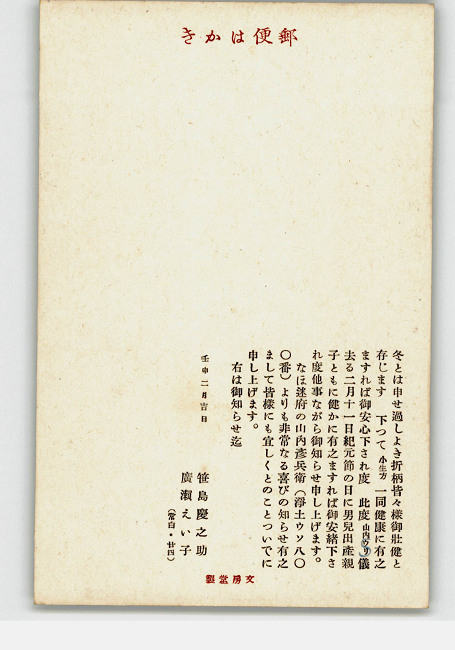 郵便はかき
冬とは申せ過しよき折柄皆々様御壯健と
存じます　下つて　小生方　一同健康に有之
ますれば御安心下され度　此度　山内　儀
去る二月十一日紀元節の日に男兒出產親
子ともに健かに有之ますれば御安緒下さ
れ度他事ながら御知らせ申し上げます。
なほ迷府の山内彥兵衞（淨土ウツ八〇
〇番）よりも非常なる喜びの知らせ有之
まして皆樣にも宜しくとのことついでに
申し上げます。
右は御知らせ迄
壬申二月吉日
笹島慶之助
廣瀨えい子
（常白・廿四）
文房堂製